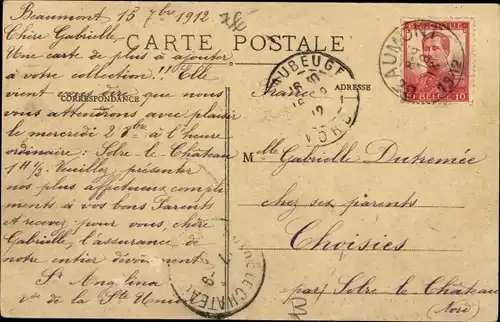 Beaumont 15 7bre 1912
Chère Gabrielle
Une carte de plus à ajouter
à votre collection!!! Elle
vient vous dire que nous
vous attendrons avec plaisir
le mercredi 2 8bre à l'heure
ordinaire: Solre-le-Château
1 H ½. Veuillez présenter
nos plus affectueux complé
ments à vos bons Parents
et recevez pour vous, chère
Gabrielle, l'assurance de
notre entier dévouement
Sr Angélina
de la Ste Union
CARTE POSTALE
CORRESPONDANCE
ADRESSE
France
Mlle Gabrielle Dutremée
chez ses parents
Choisies
par Solre-le-Château
(Nord)
MAUBEUGE
NORD
BEAUMONT
1912
BELGIQUE
10 BELGIE 10
SOLRE-LE-CHATEAU